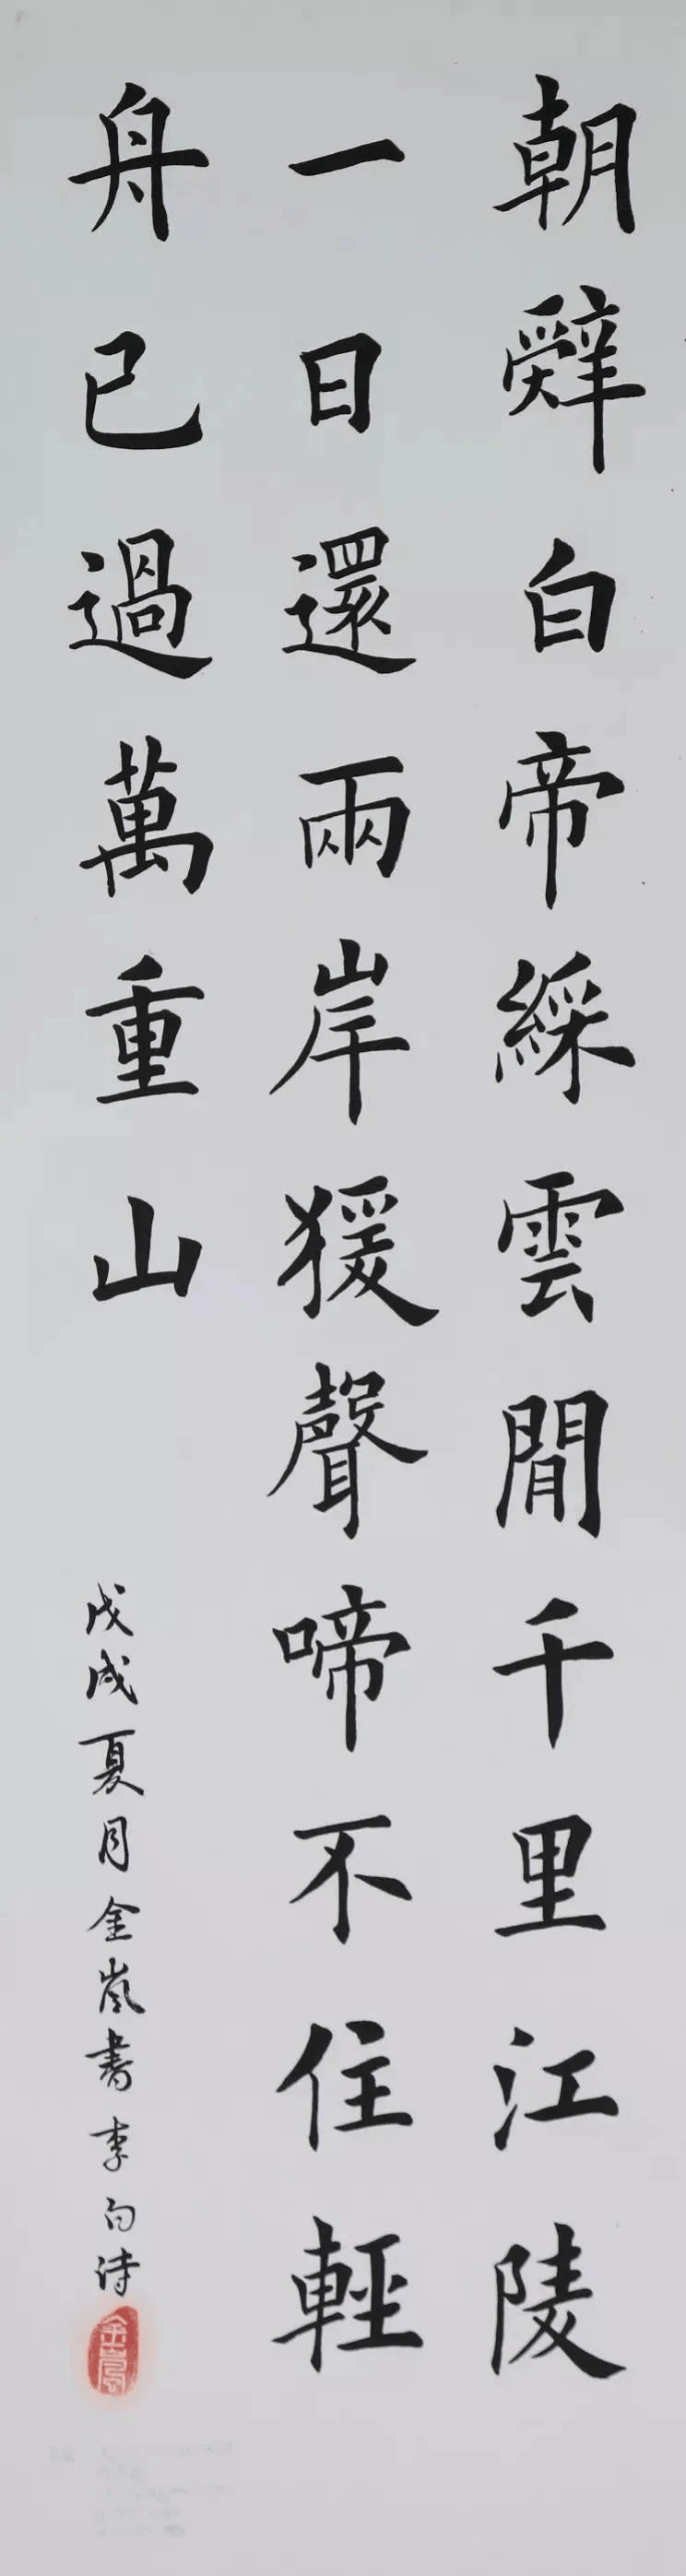 朝辤白帝綵雲閒千里江陵
一日還兩岸猨聲啼不住輕
舟已過萬重山
戊戌夏月金嵐書李白诗
金嵐